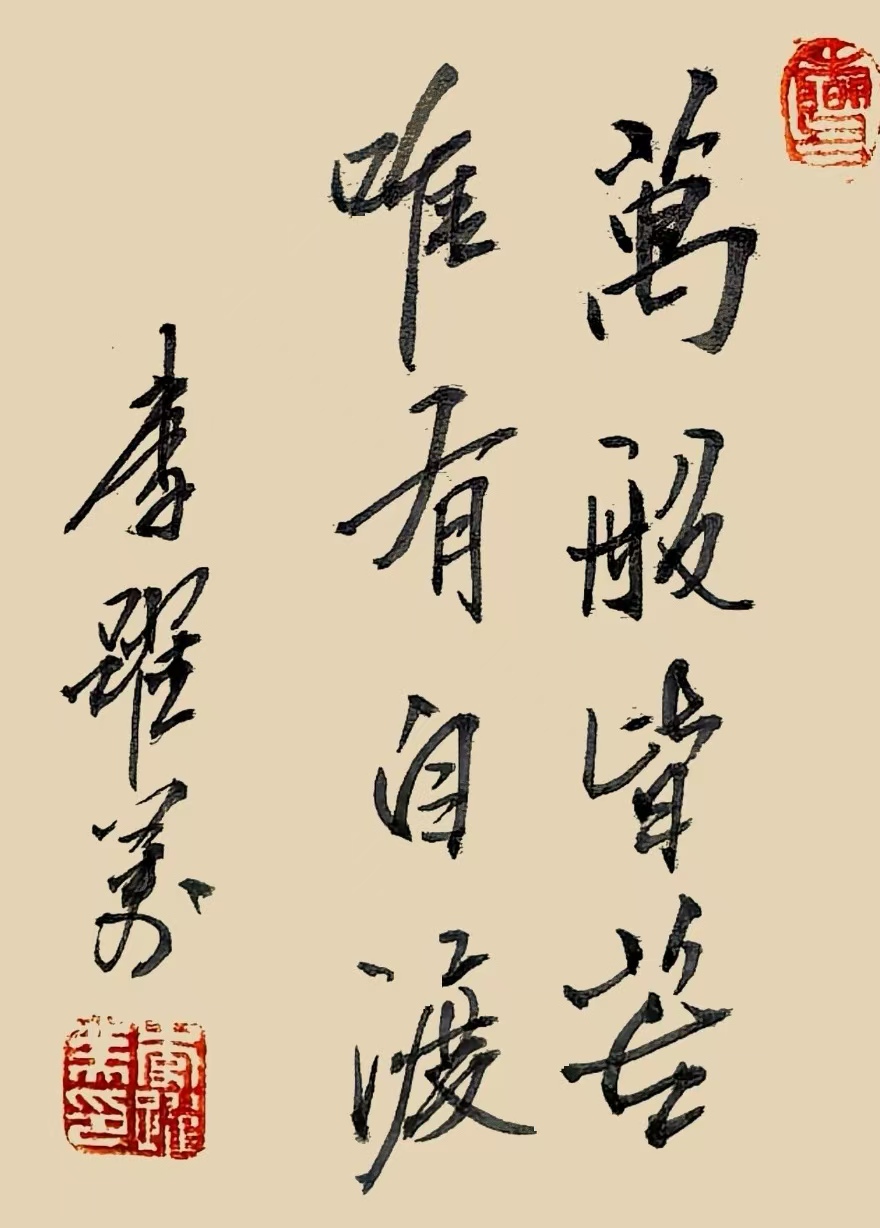 萬般皆苦
唯有自渡
李躍